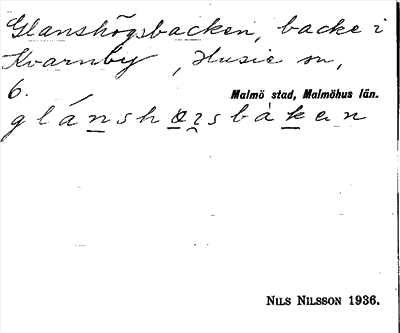 Glanshögsbacken, backe i
Kvarnby, Husie sn,
6.
Malmö stad, Malmöhus län.
glánshøʒsbàkan
NILS NILSSON 1936.